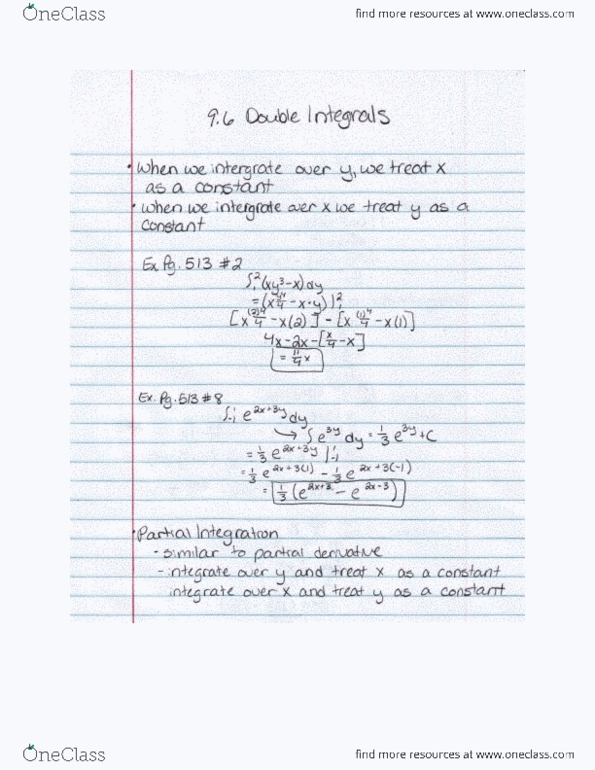 OneClass
find more resources at www.oneclass.com
9.6 Double Integrals
• When we intergrate over y, we treat x
as a constant
• when we intergrate over x we treat y as a
constant
Ex Pg. 513 #2
∫₁²(xy³-x)dy
=(x y⁴/4 - x·y)|₁²
[x (2)⁴/4 - x(2)] - [x (1)⁴/4 - x(1)]
4x-2x-[x/4-x]
= 11/4 x
Ex. Pg. 513 #8
∫₋₁¹ e^(2x+3y) dy
→ ∫e^(3y) dy = 1/3 e^(3y) + C
= 1/3 e^(2x+3y) |₋₁¹
= 1/3 e^(2x+3(1)) - 1/3 e^(2x+3(-1))
= 1/3 (e^(2x+3) - e^(2x-3))
• Partial Integration
- similar to partial derivative
- integrate over y and treat x as a constant
integrate over x and treat y as a constant
OneClass
find more resources at www.oneclass.com